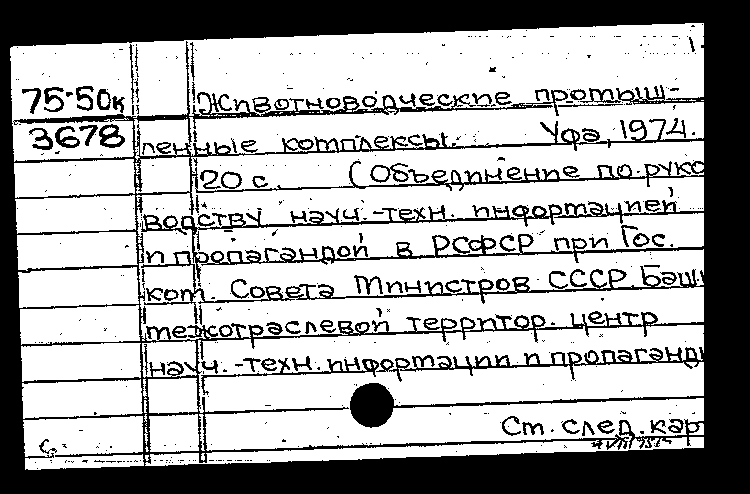 75-50к Животноводческие промыш-
3678 ленные комплексы. Уфа, 1974.
20 с. (Объединение по руко
водству науч.-техн. информацией
и пропагандой в РСФСР при Гос.
ком. Совета Министров СССР. Баш
межотраслевой территор. центр
науч.-техн. информации и пропаганд
Ст. след. кар